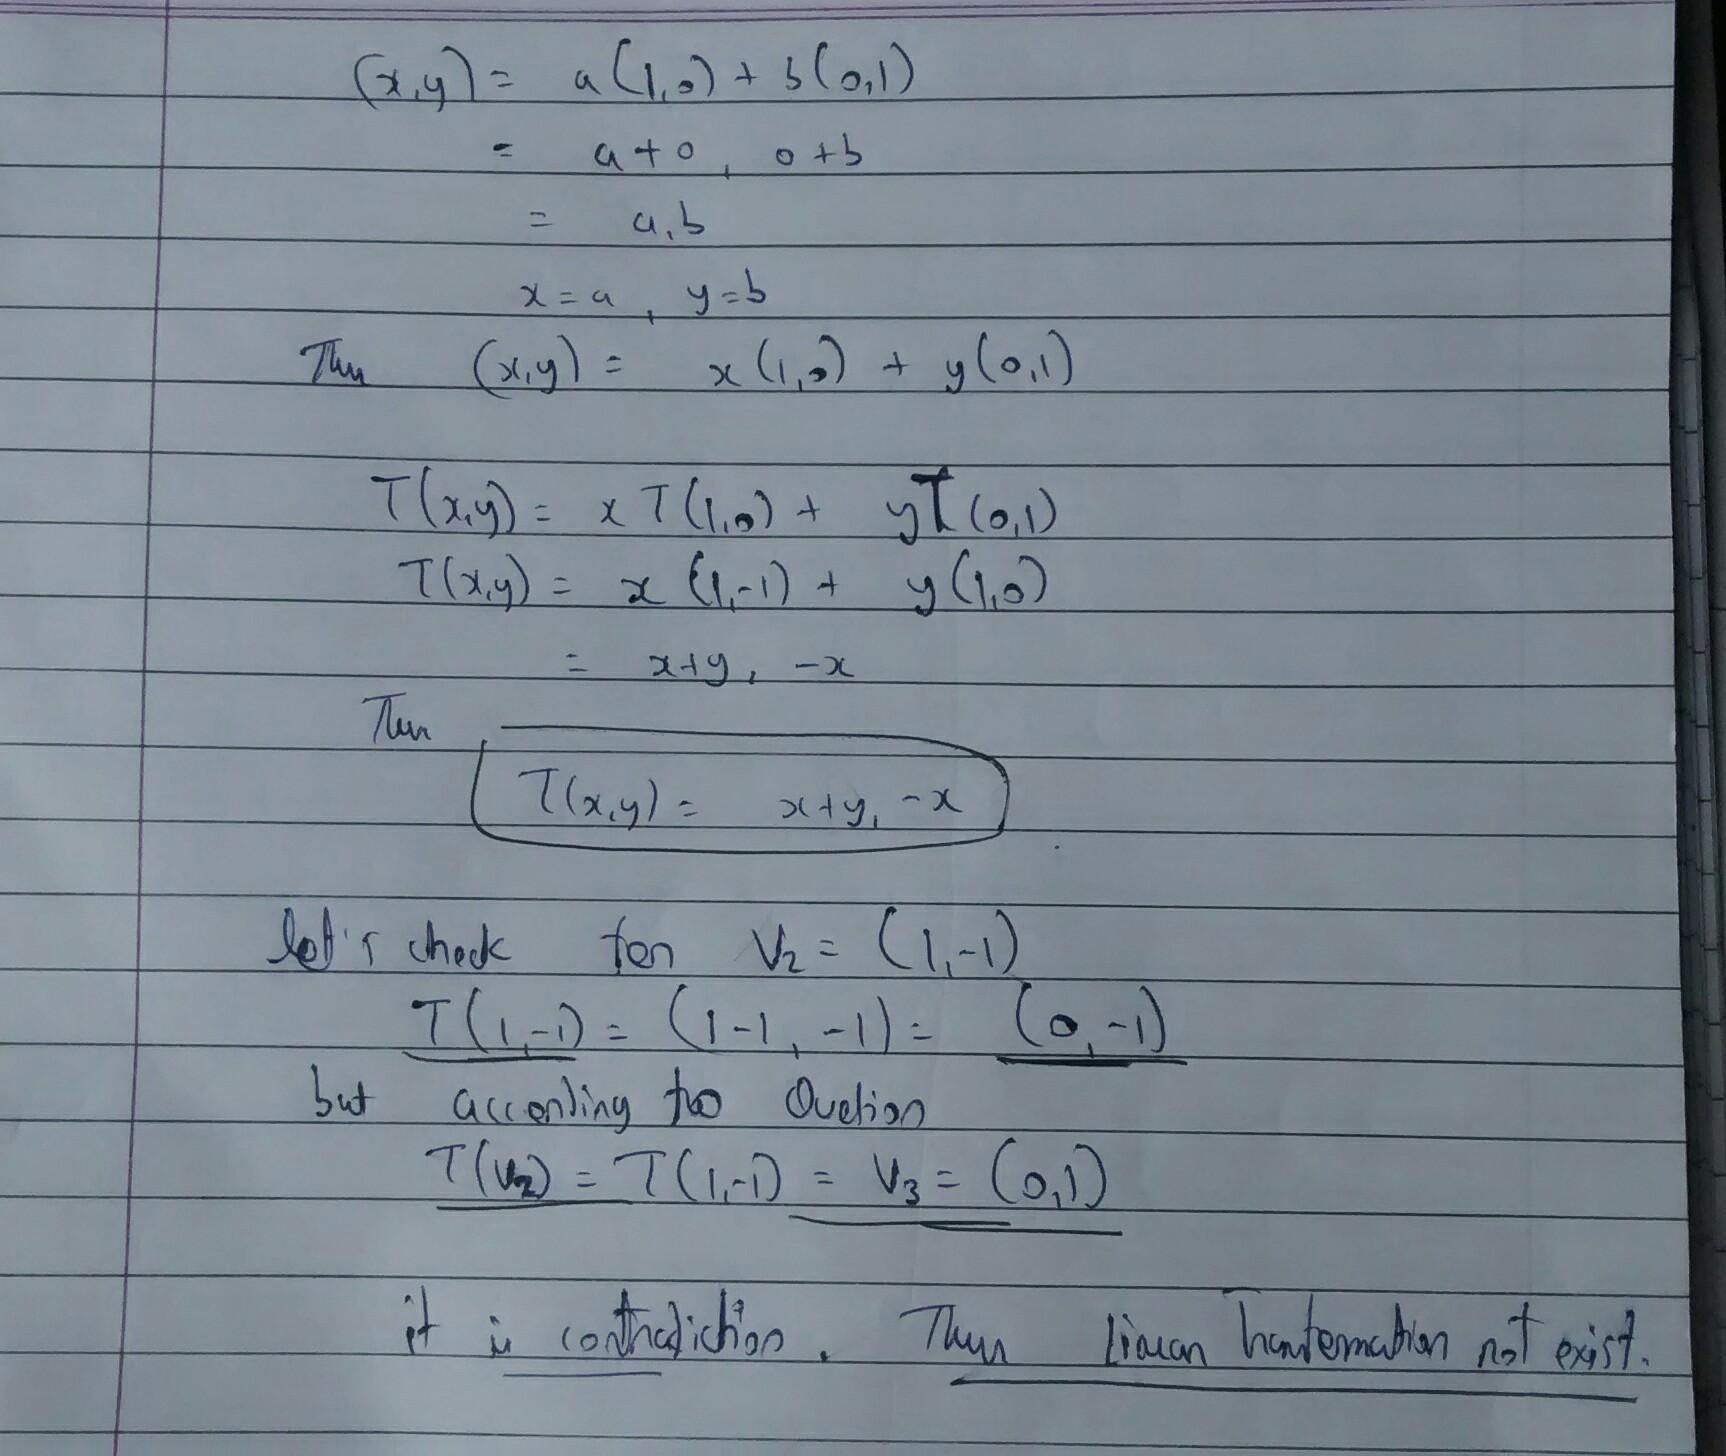 (x,y) = a(1,0) + b(0,1)
= a+0, 0+b
= a,b
x=a, y=b
Thus (x,y) = x(1,0) + y(0,1)
T(x,y) = x T(1,0) + yT(0,1)
T(x,y) = x (1,-1) + y(1,0)
= x+y, -x
Then
T(x,y) = x+y, -x
let's check for V₂ = (1,-1)
T(1,-1) = (1-1, -1) = (0,-1)
but according to Quetion
T(V₂) = T(1,-1) = V₃ = (0,1)
it is contradiction. Thus Linear tranformation not exist.